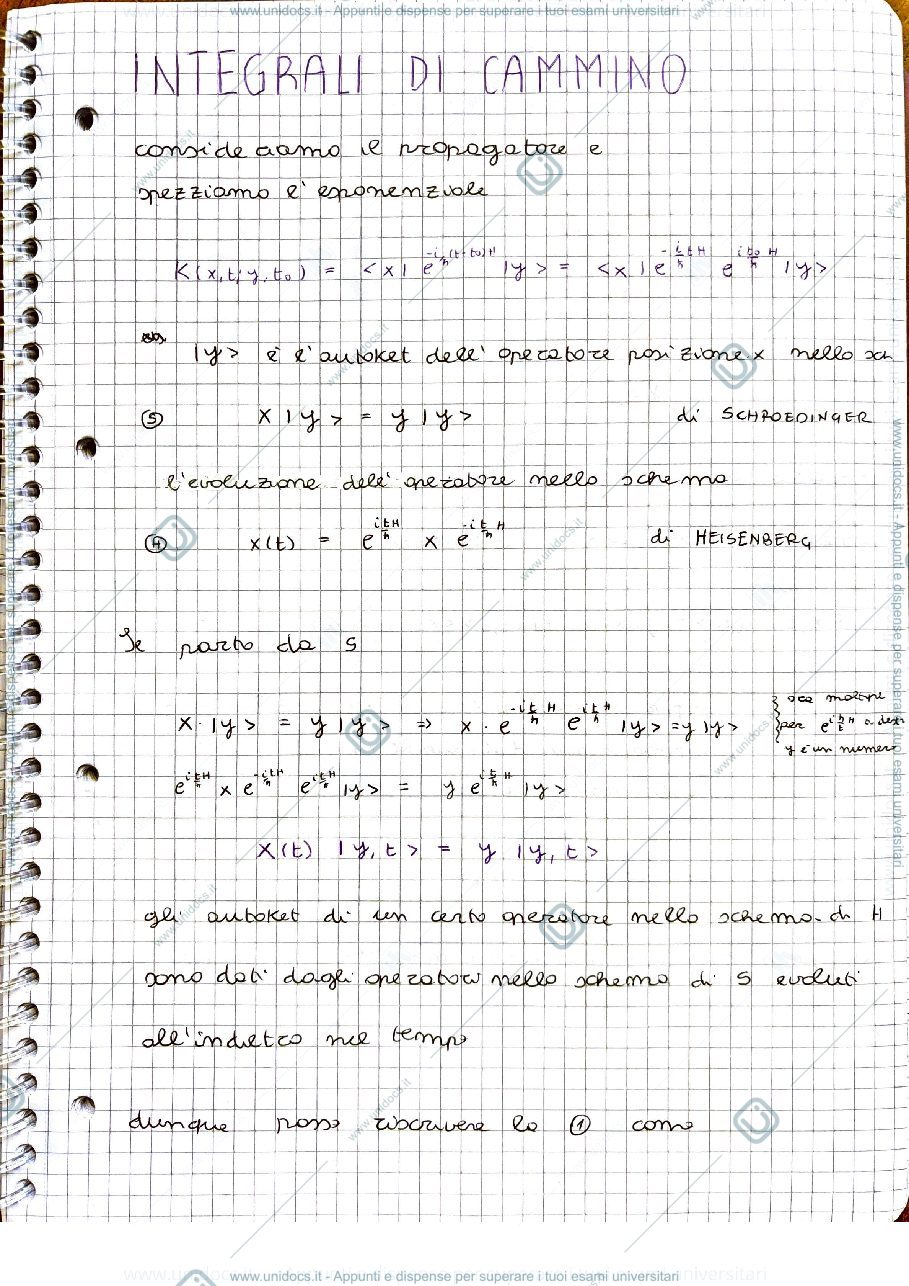 www.unidocs.it - Appunti e dispense per superare i tuoi esami universitari
INTEGRALI DI CAMMINO
consideriamo il propagatore e
spezziamo l'esponenziale
K(x,t;y,t₀) = <x| e^{-i/ħ (t-t₀)H} |y> = <x| e^{-i/ħ tH} e^{i t₀/ħ H} |y>
|y> è l'autoket dell'operatore posizione x nello sch
Ⓢ x|y> = y|y> di SCHROEDINGER
l'evoluzione dell'operatore nello schema
Ⓗ x(t) = e^{i t/ħ H} x e^{-i t/ħ H} di HEISENBERG
Se parto da S
x·|y> = y|y> => x· e^{-i t/ħ H} e^{i t/ħ H} |y> = y|y>
per e^{i t/ħ H} a destr
y è un numero
e^{i t/ħ H} x e^{-i t/ħ H} e^{i t/ħ H} |y> = y e^{i t/ħ H} |y>
x(t) |y,t> = y |y,t>
gli autoket di un certo operatore nello schema di H
sono dati dagli operatori nello schema di S evoluti
all'indietro nel tempo
dunque posso riscrivere la ① come
www.unidocs.it - Appunti e dispense per superare i tuoi esami universitari